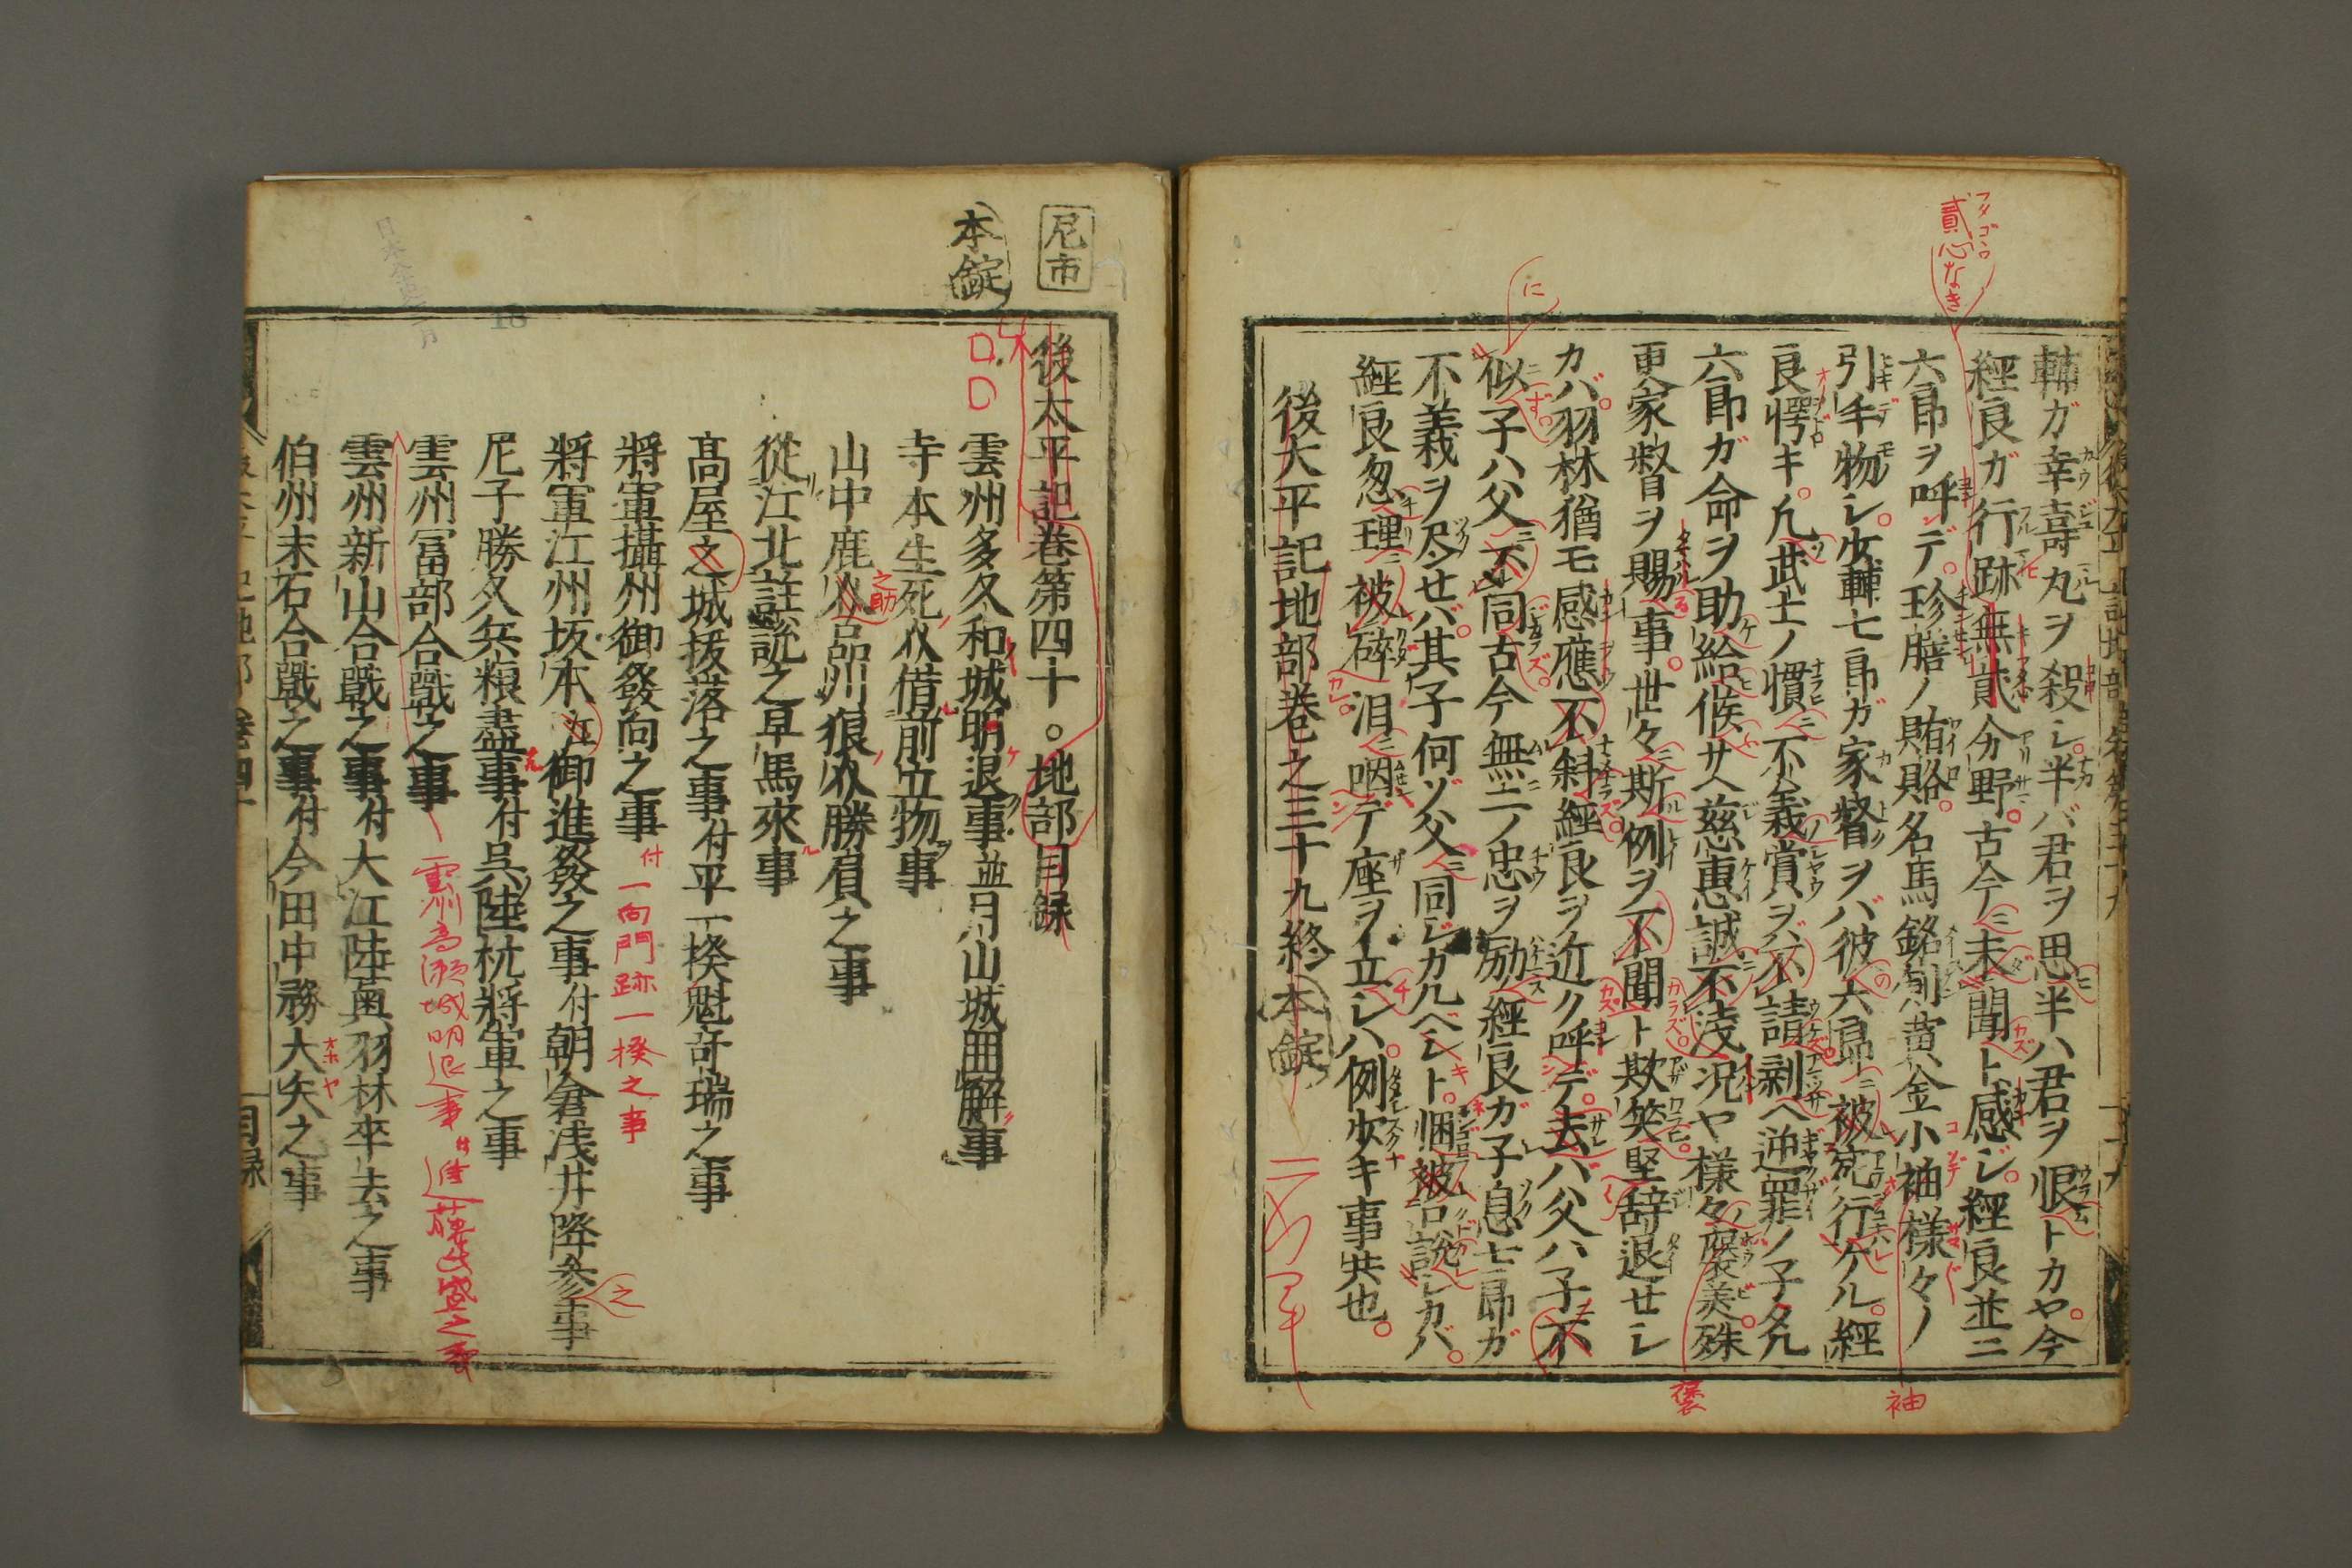 輔ガ幸壽丸ヲ殺シ半バ君ヲ思半ハ君ヲ恨トカヤ今
經良ガ行跡無貳分野古今未聞ト感ジ經良並ニ
六郎ヲ呼デ珍膳ノ賄賂名馬銘劍黄金小袖様々ノ
引手物シ少輔七郎ガ家督ヲバ彼六郎被宛行ケル經
良愕キ凡武士ノ慣不義賞ヲ不請剰ヘ逆罪ノ子夕凡
六郎ガ命ヲ助給候サヘ慈恵誠不淺況ヤ様々褒美殊
更家督ヲ賜事世々斯例ヲ不聞ト欺笑堅辞退セシ
カバ羽林猶モ感應不斜經良ヲ近ク呼デ去バ父ハ子不
似子ハ父不同古今無二ノ忠ヲ励經良ガ子息七郎ガ
不義ヲ尽セバ其子何ゾ父同ジカルベシト悃被口説シカバ
經良忽理被碎泪咽デ座ヲ立シハ例少キ事共也
後太平記地部巻之三十九終
本錠
貳心なき
フタゴコロ
に
袖
褒
尼市
本錠
後太平記巻第四十。地部目録
雲州多久和城明退事並月山城囲解事
寺本生死介借前立物事
山中鹿介品川狼介勝負之事
之助
從江北註訛之早馬來事
髙屋之城抜落之事付平一揆魁奇瑞之事
將軍攝州御發向之事
付一向門跡一揆之事
將軍江州坂本江御進發之事付朝倉浅井降参事
之
尼子勝久兵粮盡事付呉陸杭將軍之事
雲州冨部合戰之事
雲州高瀬城明退事付進藤
雲州新山合戰之事付大江陸奥羽林卒去之事
伯州末石合戰之事付今田中務大矢之事